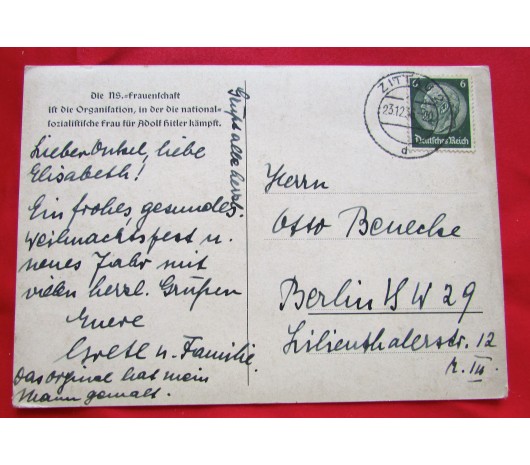 die NS.-Frauenschaft
ist die Organisation, in der die national-
sozialistische Frau für Adolf Hitler kämpft.
Lieber Onkel, liebe
Elisabeth!
Ein frohes gesundes
Weihnachtsfest u.
neues Jahr mit
vielen herzl. Grüßen
Euere
Grete u. Familie.
Das Original hat mein
Mann gemalt.
Grüßt alle herzl.
ZITTAU
23.12.3
d
6
Deutsches Reich
Herrn
Otto Benecke
Berlin SW 29
Lilienthalerstr. 12
r. III.